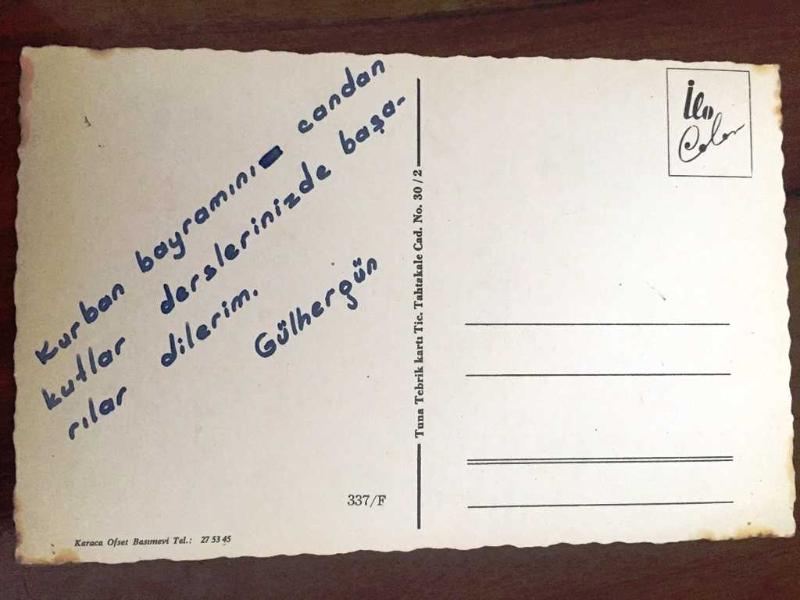 Kurban bayramını candan
kutlar derslerinizde başa-
rılar dilerim.
Gülhergün
337/F
Karaca Ofset Basımevi Tel.: 27 53 45
Tuna Tebrik kartı Tic. Tahtakale Cad. No. 30/2
İlo
Color